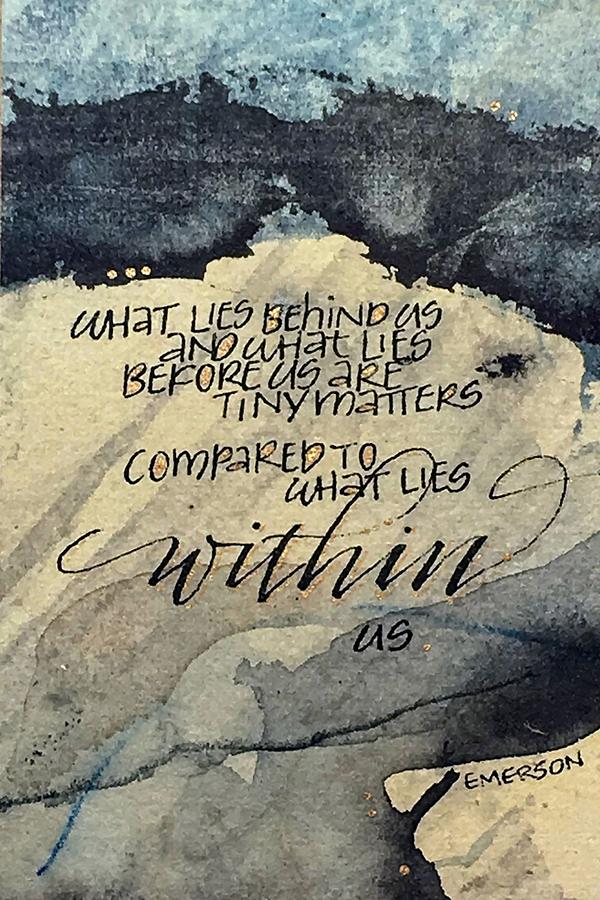 WHAT LIES BEHIND US
AND WHAT LIES
BEFORE US ARE
TINY MATTERS
COMPARED TO
WHAT LIES
within
US.
EMERSON